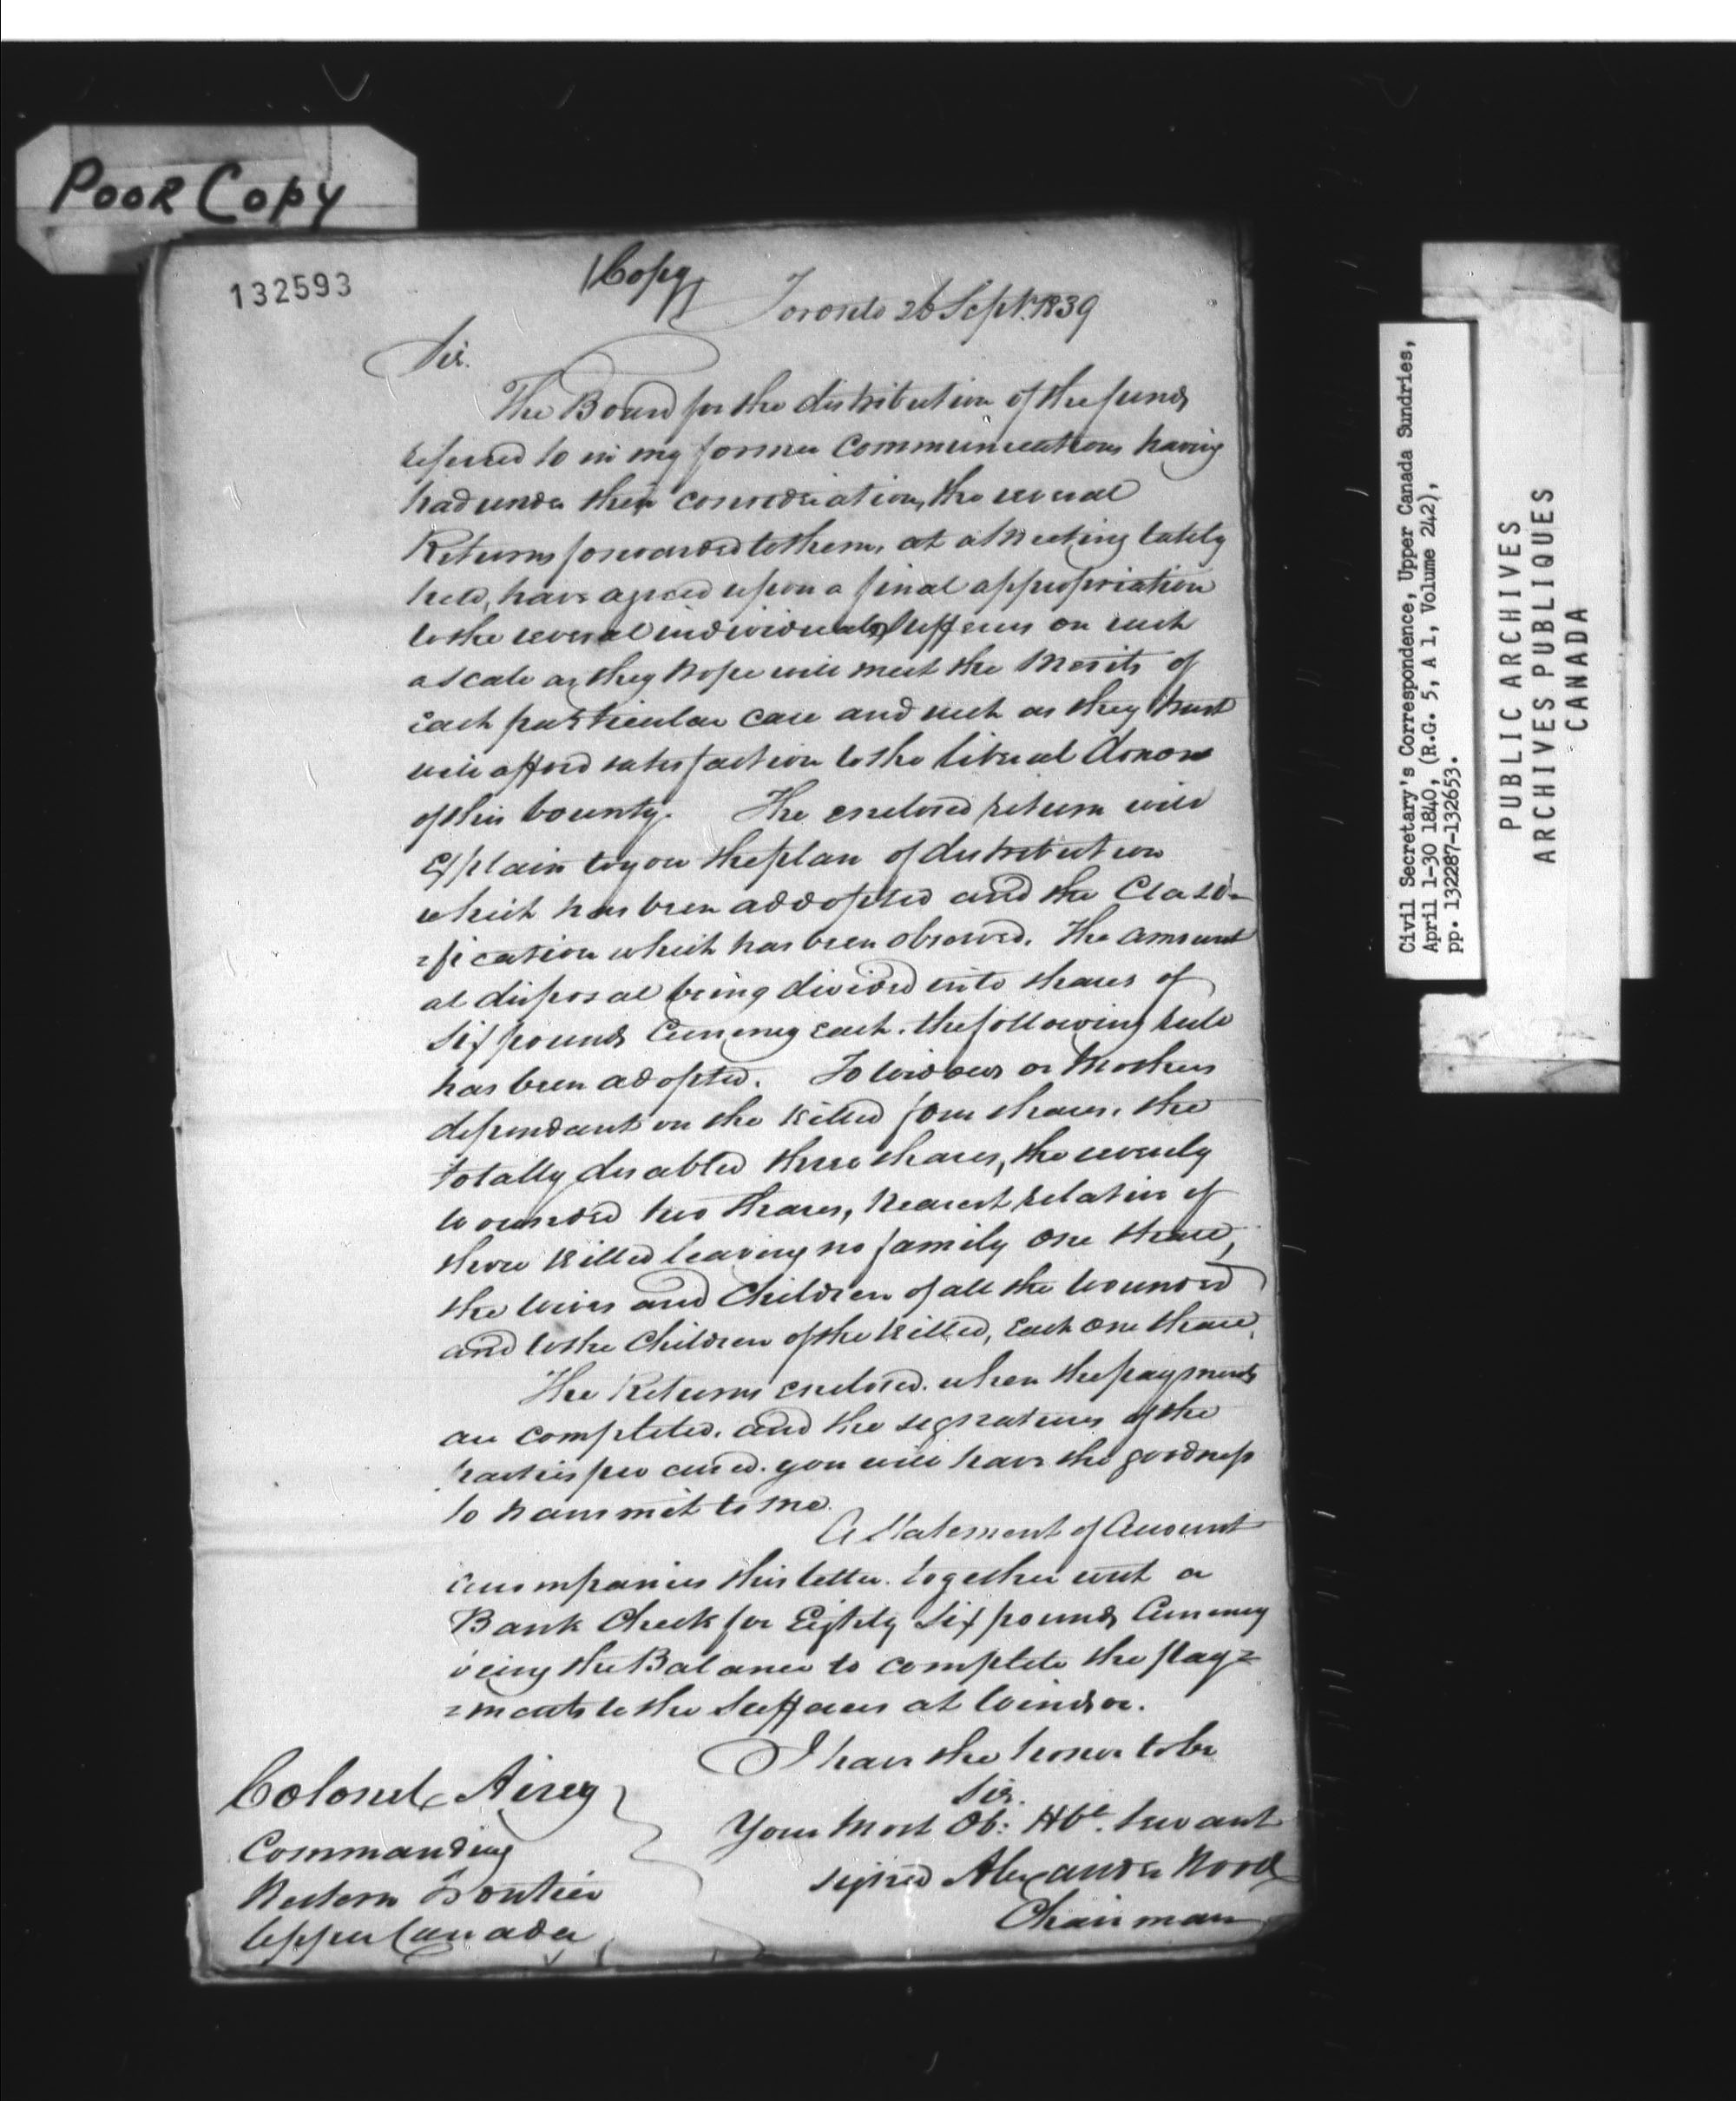 Poor Copy
132593
Copy
Toronto 26 Septr. 1839
Sir.
The Board for the distribution of the funds
referred to in my former Communications having
had under their consideration, the several
Returns forwarded to them, at a Meeting lately
held, have agreed upon a final appropriation
to the several individual Sufferers on such
a scale as they hope will meet the Merits of
each particular case and such as they trust
will afford satisfaction to the liberal donors
of this bounty. The enclosed return will
Explain to you the plan of distribution
which has been addopted and the Classi-
=fication which has been observed. The amount
at disposal being divided into shares of
Six pounds Currency each. the following rule
has been adopted. To Widows or Mothers
dependant on the killed four shares. the
totally disabled three shares, the severely
wounded two shares, Nearest relative of
those killed leaving no family One share,
the wives and Children of all the wounded
and to the Children of the killed, each one share.
The Returns enclosed. when the payments
are completed. and the signatures of the
parties procured. you will have the goodness
to transmit to me.
A Statement of Account
accompanies this letter. together with a
Bank Check for Eighty Six pounds Currency
being the Balance to complete the pay=
=ments to the Sufferers at Windsor.
I have the honor to be
Sir.
Your Most Ob: Hble. Servant
signed Alexander Wood
Chairman
Colonel Airey
Commanding
Western Frontier
Upper Canada
Civil Secretary's Correspondence, Upper Canada Sundries,
April 1-30 1840, (R.G. 5, A 1, Volume 242),
pp. 132287-132653.
PUBLIC ARCHIVES
ARCHIVES PUBLIQUES
CANADA